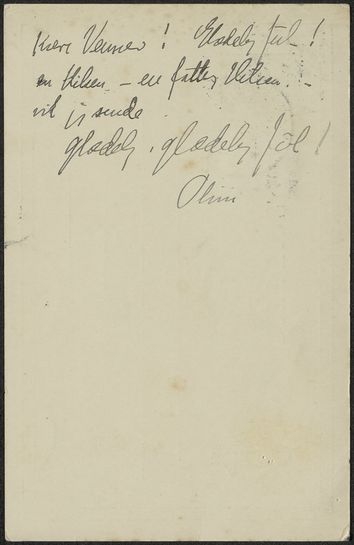 Kære Venner! Glædelig Jul!
en Hilsen – en fattig Hilsen –
vil jeg sende
glædelig, glædelig Jul!